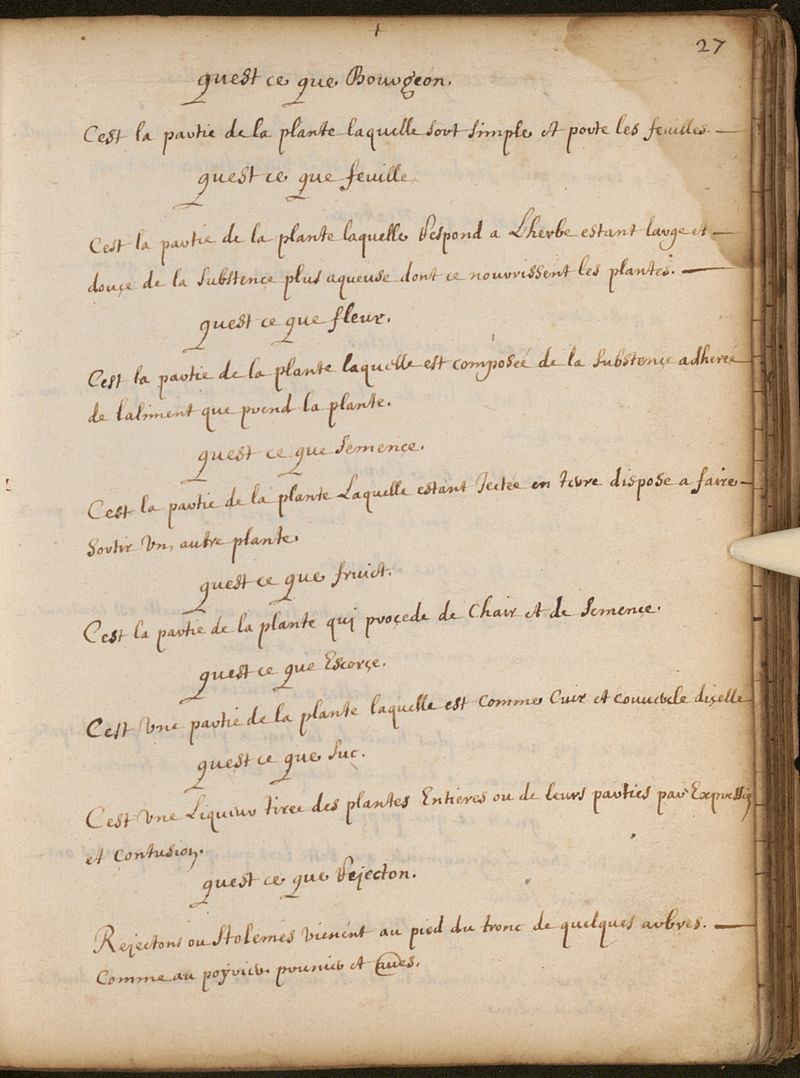 27
quest ce que Bourgeon.
Cest la partie de la plante laquelle sort simple et porte les feuilles.
quest ce que feuille
Cest la partie de la plante laquelle Respond a Lherbe estant large et
douçe de la Substence plus aqueuse dont ce nourrissent les plantes.
quest ce que fleur.
Cest la partie de la plante laquelle est composeé de la Substençe adhereé
de laliment que prend la plante.
quest ce que Semence.
Cest la partie de la plante Laquelle estant Jectee en terre dispose a faire
Sortir Un autre plante
quest ce que fruict.
Cest la partie de la plante qui proçede de Chair et de Semence.
quest ce que Escorçe.
Cest Une partie de la plante laquelle est Comme Cuir et couvercle diçelle
quest ce que Suc.
Cest Une Liqueur tiree des plantes Entieres ou de leurs parties par Expressiõ
et Contusion.
quest ce que Rejecton.
Rejectons ou Stolemes vienent au pied du tronc de quelques arbres.
Comme au poyrier prunier et